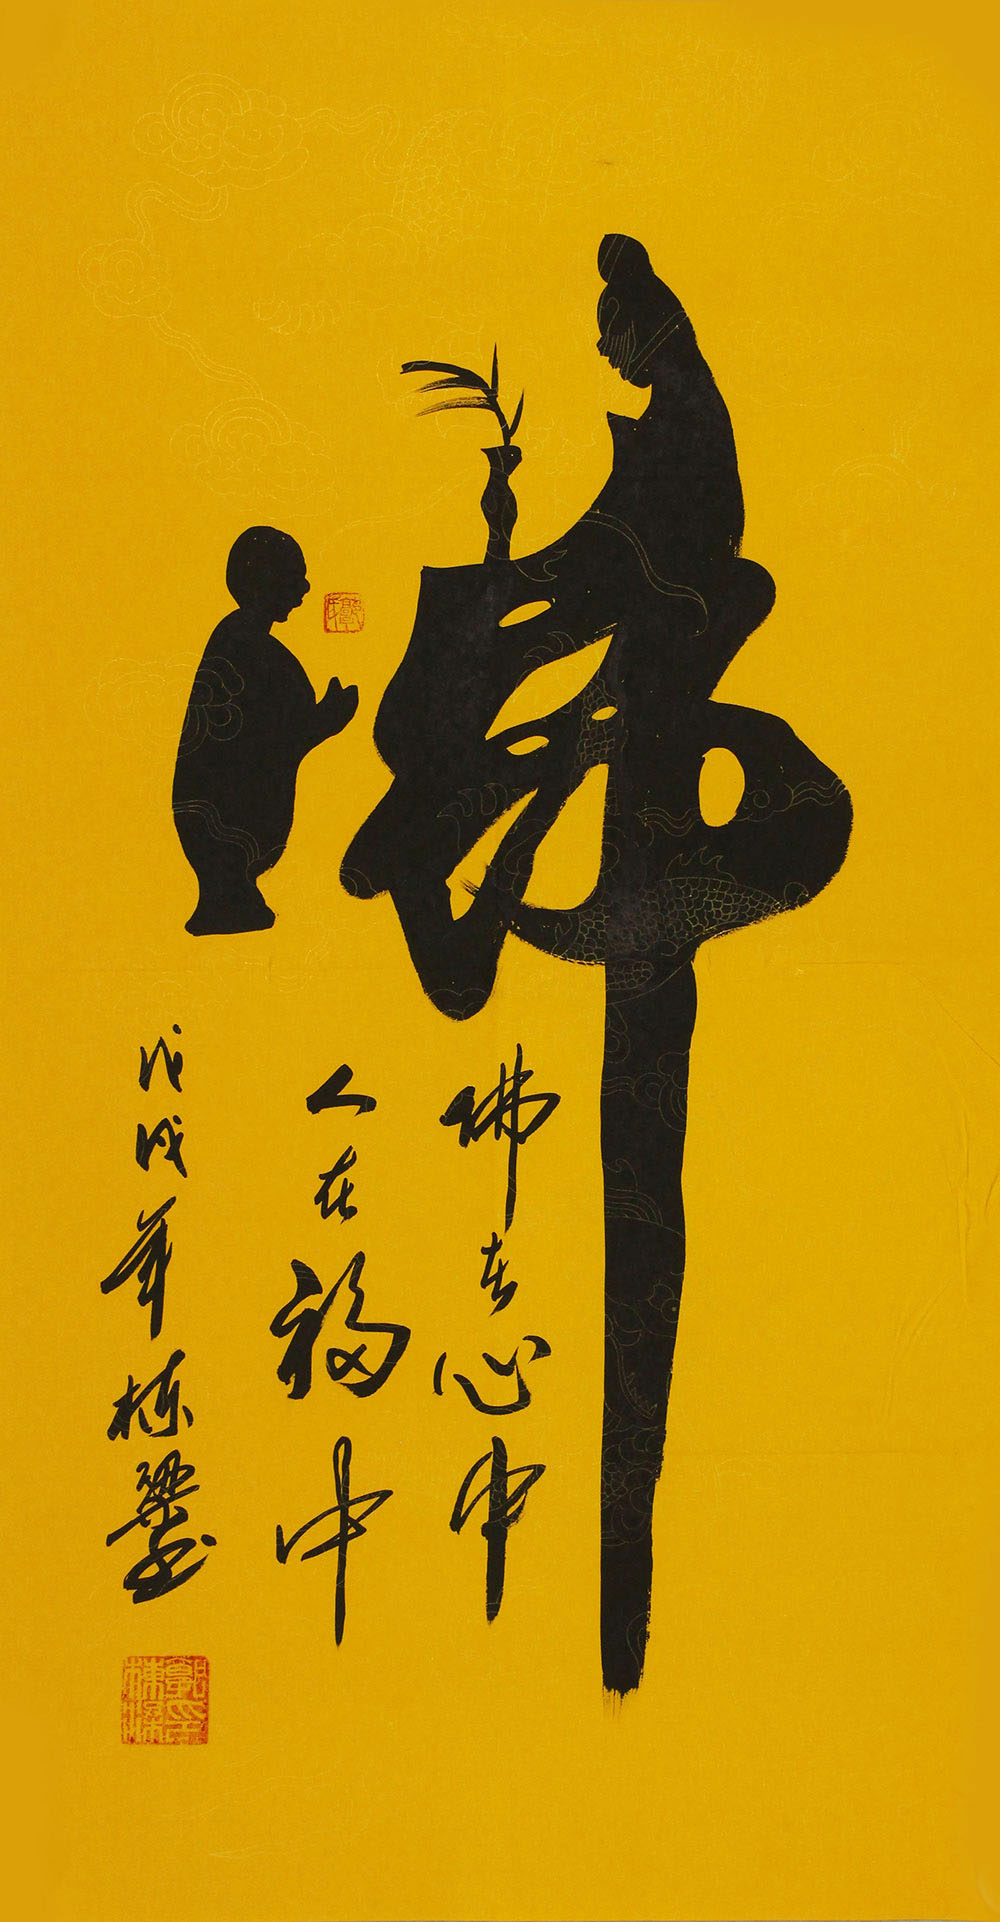 佛
佛在心中
人在福中
戊戌年 栋梁书